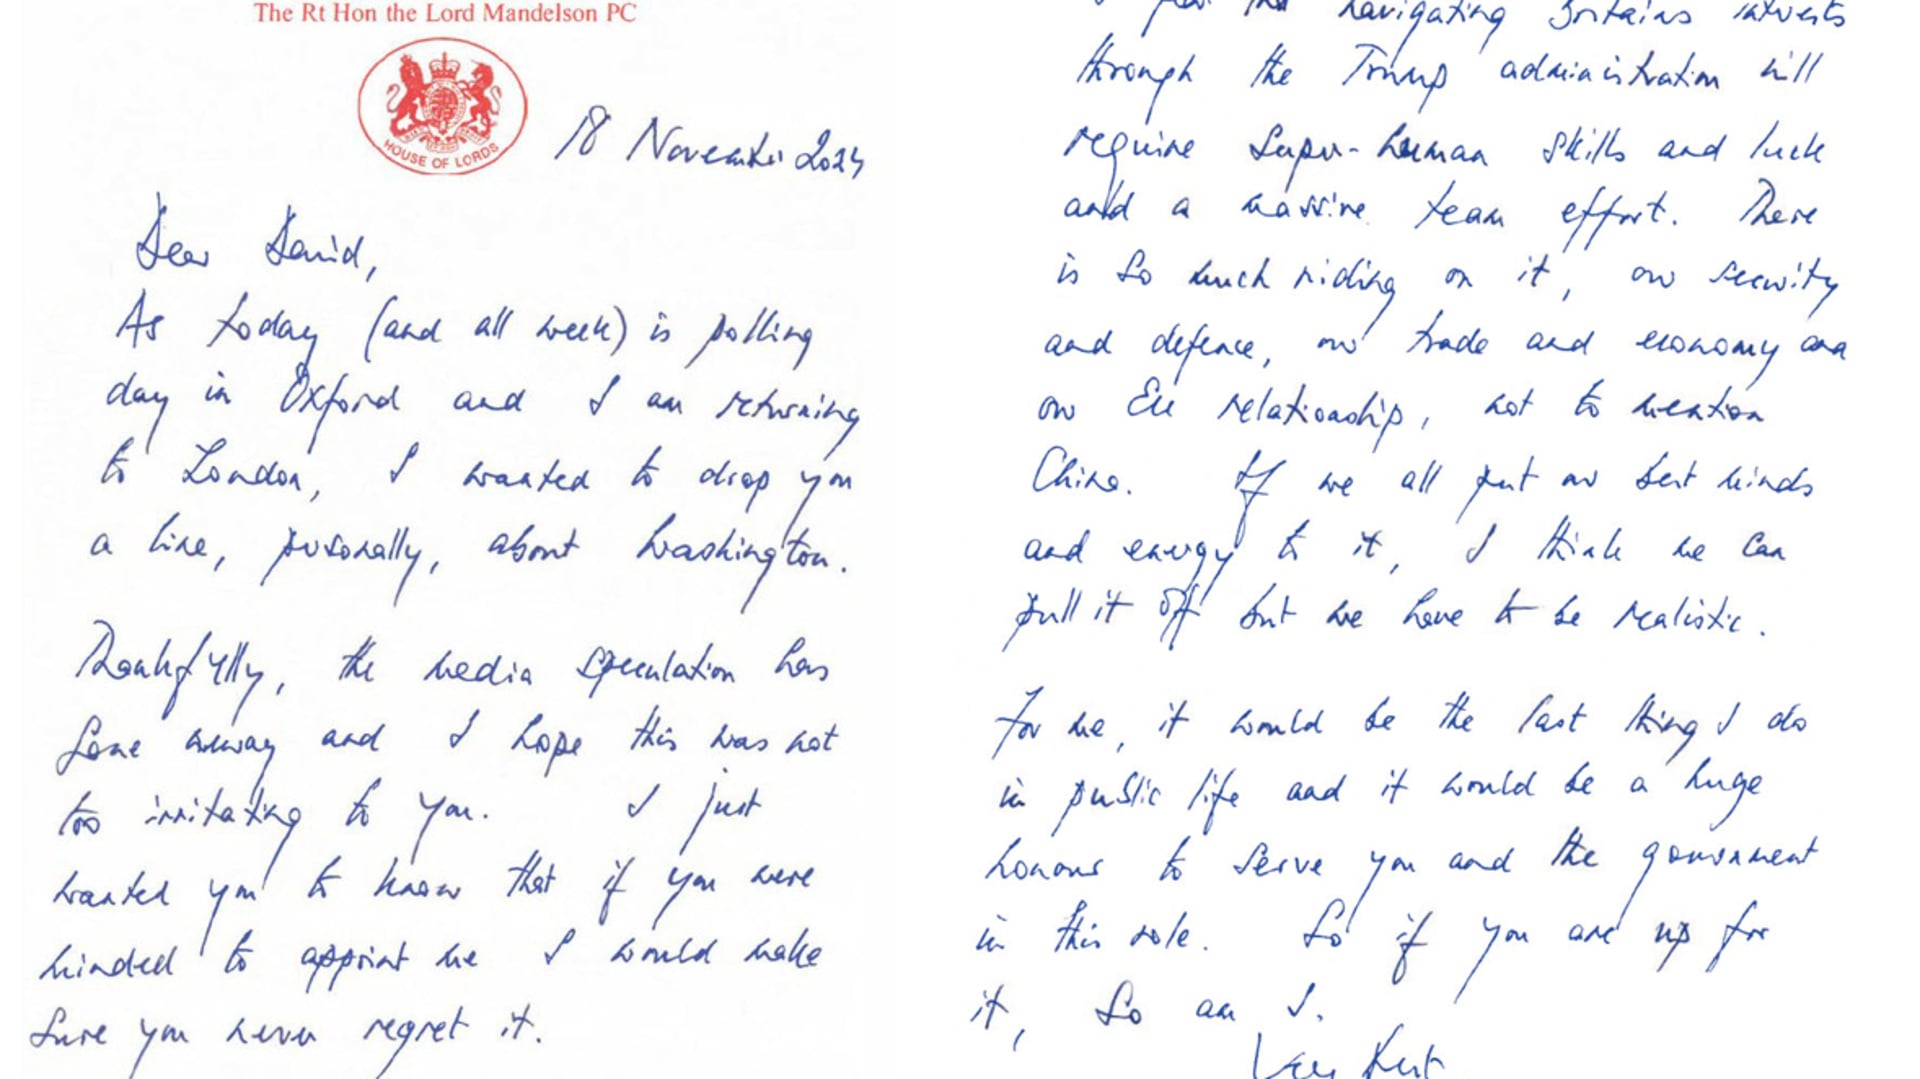 The Rt Hon the Lord Mandelson PC
HOUSE OF LORDS
18 November 2024
Dear David,
As today (and all week) is polling
day in Oxford and I am returning
to London, I wanted to drop you
a line, personally, about Washington.
Thankfully, the media speculation has
gone away and I hope this was not
too irritating to you. I just
wanted you to know that if you were
minded to appoint me I would make
sure you never regret it.
navigating Britains interests
through the Trump administration will
require super-human skills and luck
and a massive team effort. There
is so much riding on it, our security
and defence, our trade and economy and
our EU relationship, not to mention
China. If we all put our best minds
and energy to it, I think we can
pull it off but we have to be realistic.
For me, it would be the last thing I do
in public life and it would be a huge
honour to serve you and the government
in this role. So if you are up for
it, so am I.
Very best